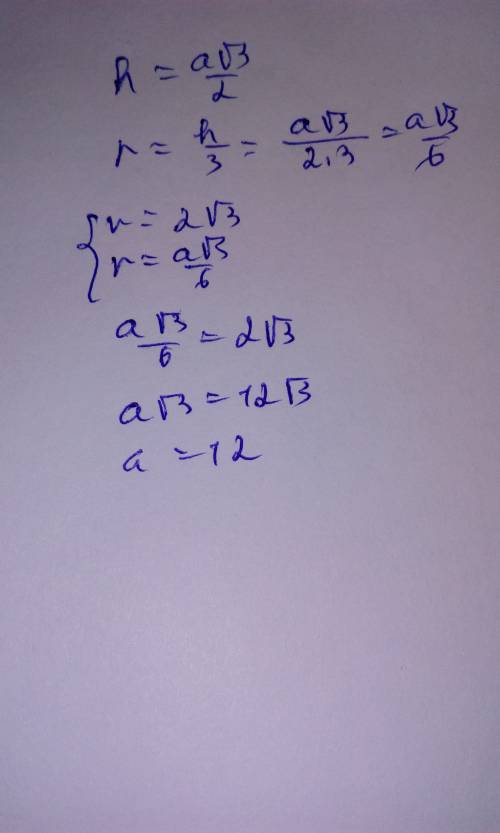 h = a√3/2
r = h/3 = a√3/2·3 = a√3/6
{ r = 2√3
r = a√3/6
a√3/6 = 2√3
a√3 = 12√3
a = 12